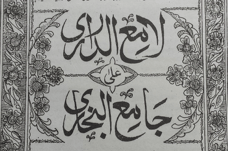 لامع الدراري
على
جامع البخاري